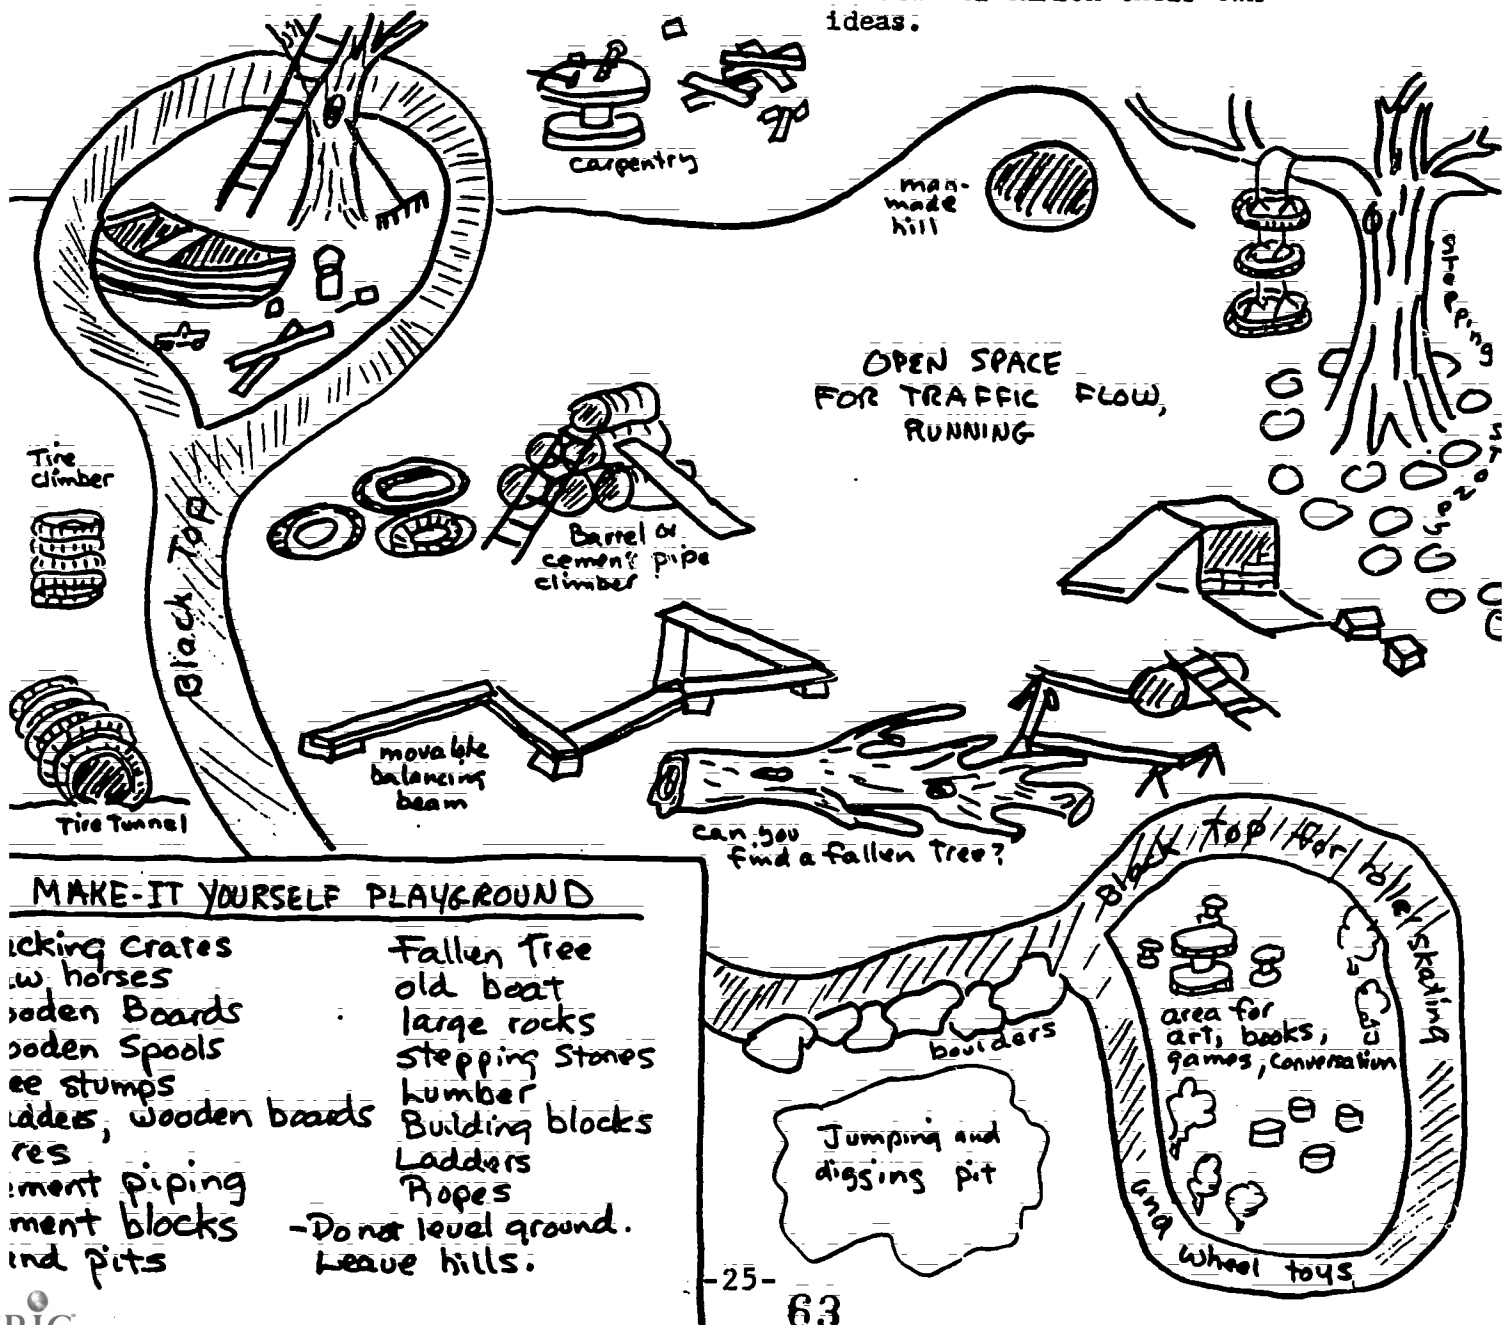 ideas.
carpentry
man-
made
hill
stepping
stones
OPEN SPACE
FOR TRAFFIC FLOW,
RUNNING
Tire
climber
Black Top
Barrel or
cement pipe
climber
movable
balancing
beam
Tire Tunnel
can you
find a fallen Tree?
Black top for roller skating
and wheel toys
area for
art, books,
games, conversation
boulders
Jumping and
digging pit
MAKE-IT YOURSELF PLAYGROUND
crates
horses
Boards
Spools
stumps
wooden boards
piping
blocks
pits
Fallen Tree
old boat
large rocks
stepping Stones
Lumber
Building blocks
Ladders
Ropes
-Do not level ground.
Leave hills.
-25-
63